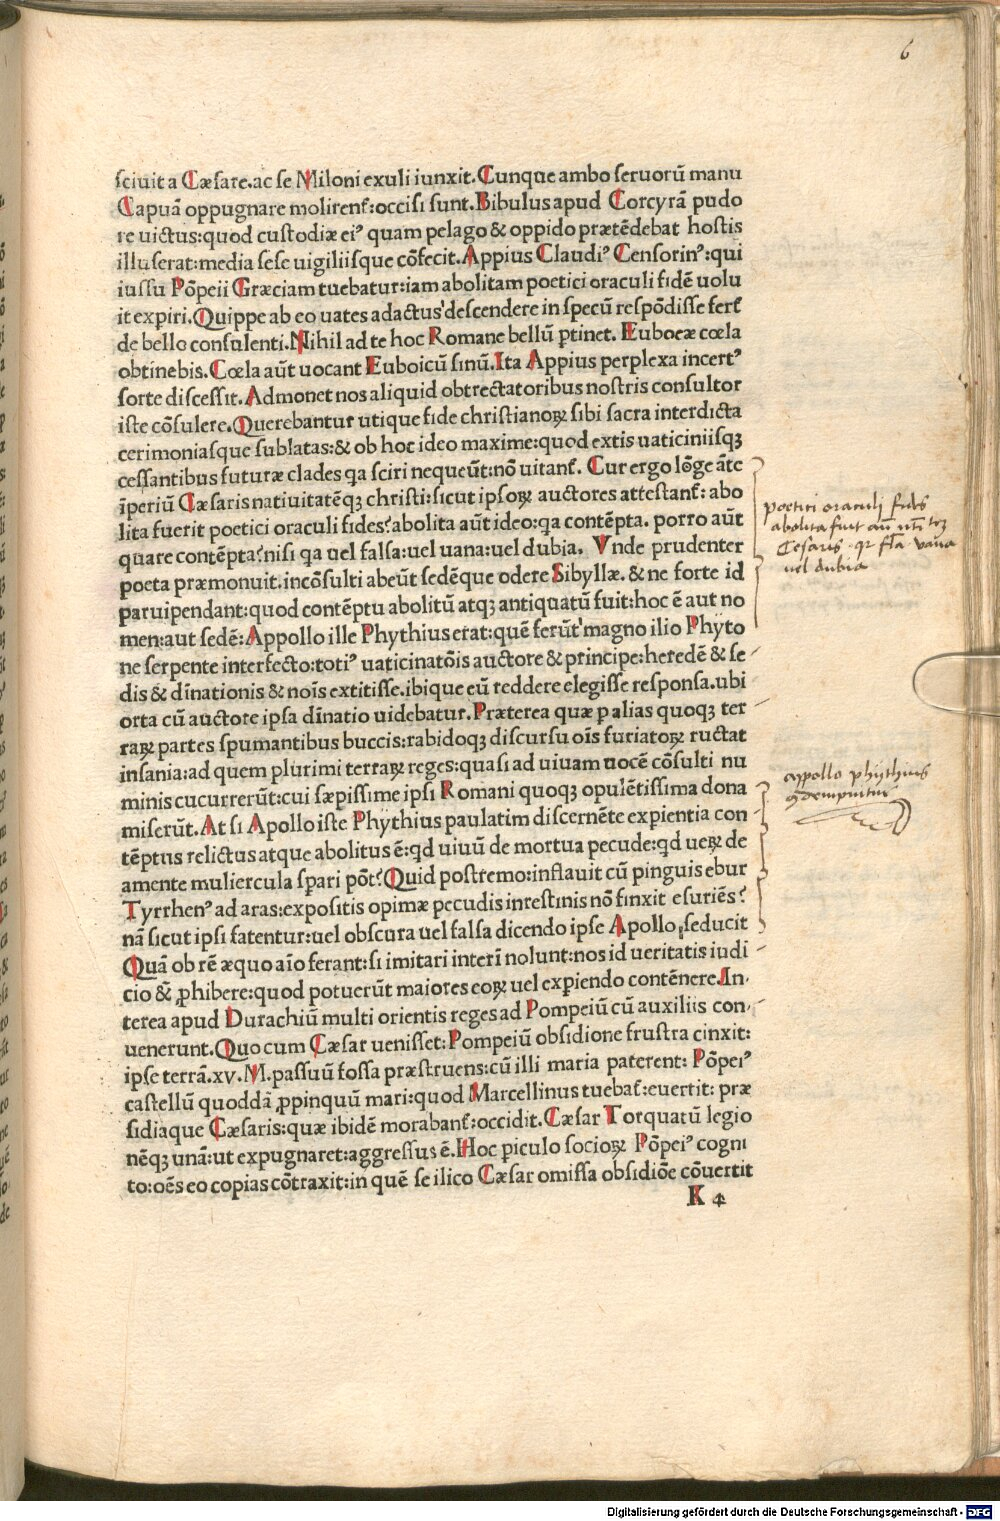 6
sciuit a Cæsare.ac se Miloni exuli iunxit.Cunque ambo seruorū manu
Capuā oppugnare molirenẗ:occisi sunt.Bibulus apud Corcyrā pudo
re uictus:quod custodiæ eiꝰ quam pelago & oppido prætēdebat hostis
illuserat:media sese uigiliisque cōfecit.Appius Claudiꝰ Censorinꝰ:qui
iussu Pōpeii Græciam tuebatur:iam abolitam poetici oraculi fidē uolu
it expiri.Quippe ab eo uates adactus'descendere in specū respōdisse ferẗ
de bello consulenti.Nihil ad te hoc Romane bellū ꝑtinet. Euboeæ cœla
obtinebis.Cœla aūt uocant Euboicū sinū.Ita Appius perplexa incertꝰ
sorte discessit.Admonet nos aliquid obtrectatoribus nostris consultor
iste cōsulere.Querebantur utique fide christianoꝝ sibi sacra interdicta
cerimoniasque sublatas:& ob hoc ideo maxime:quod extis uaticiniisqꝫ
cessantibus futuræ clades qa sciri nequeūt:nō uitanẗ. Cur ergo lōge āte
īperiū Cæsaris natiuitatēqꝫ christi:sicut ipsoꝝ auctores attestanẗ: abo
lita fuerit poetici oraculi fides?abolita aūt ideo:qa contēpta. porro aūt
quare contēpta?nisi qa uel falsa:uel uana:uel dubia. Vnde prudenter
poeta præmonuit.incōsulti abeūt sedēque odere Sibyllæ. & ne forte id
paruipendant:quod contēptu abolitū atqꝫ antiquatū fuit:hoc ē aut no
men:aut sedē:Appollo ille Phythius erat:quē ferūt'magno ilio Phyto
ne serpente interfecto:totiꝰ uaticinatōis auctore & principe:heredē & se
dis & dīnationis & noīs extitisse.ibique eū reddere elegisse responsa.ubi
orta cū auctore ipsa dīnatio uidebatur.Præterea quæ p alias quoqꝫ ter
raꝝ partes spumantibus buccis:rabidoqꝫ discursu oīs furiatoꝝ ructat
insania:ad quem plurimi terraꝝ reges:quasi ad uiuam uocē cōsulti nu
minis cucurrerūt:cui sæpissime ipsi Romani quoqꝫ opulētissima dona
miserūt.At si Apollo iste Phythius paulatim discernēte expientia con
tēptus relictus atque abolitus ē:qd uiuū de mortua pecude:qd ueꝝ de
amente muliercula spari pōt?Quid postremo:inflauit cū pinguis ebur
Tyrrhenꝰ ad aras:expositis opimæ pecudis intestinis nō finxit esuriēs?
nā sicut ipsi fatentur:uel obscura uel falsa dicendo ipse Apollo seducit
Quā ob rē æquo aīo ferant:si imitari interī nolunt:nos id ueritatis iudi
cio & ꝓhibere:quod potuerūt maiores eoꝝ uel expiendo contēnere.In
terea apud Durachiū multi orientis reges ad Pompeiū cū auxiliis con
uenerunt.Quo cum Cæsar uenisset:Pompeiū obsidione frustra cinxit:
ipse terrā.xv.M.passuū fossa præstruens:cū illi maria paterent: Pōpeiꝰ
castellū quoddā ꝓpinquū mari:quod Marcellinus tuebaẗ:euertit: præ
sidiaque Cæsaris:quæ ibidē morabanẗ:occidit.Cæsar Torquatū legio
nēqꝫ unā:ut expugnaret:aggressus ē.Hoc piculo socioꝝ Pōpeiꝰ cogni
to:oēs eo copias cōtraxit:in quē se ilico Cæsar omissa obsidiōe cōuertit
K 4
poetici oraculi fides
abolita fuit
Cesaris
vel dubia
appollo phythius
Digitalisierung gefördert durch die Deutsche Forschungsgemeinschaft - DFG